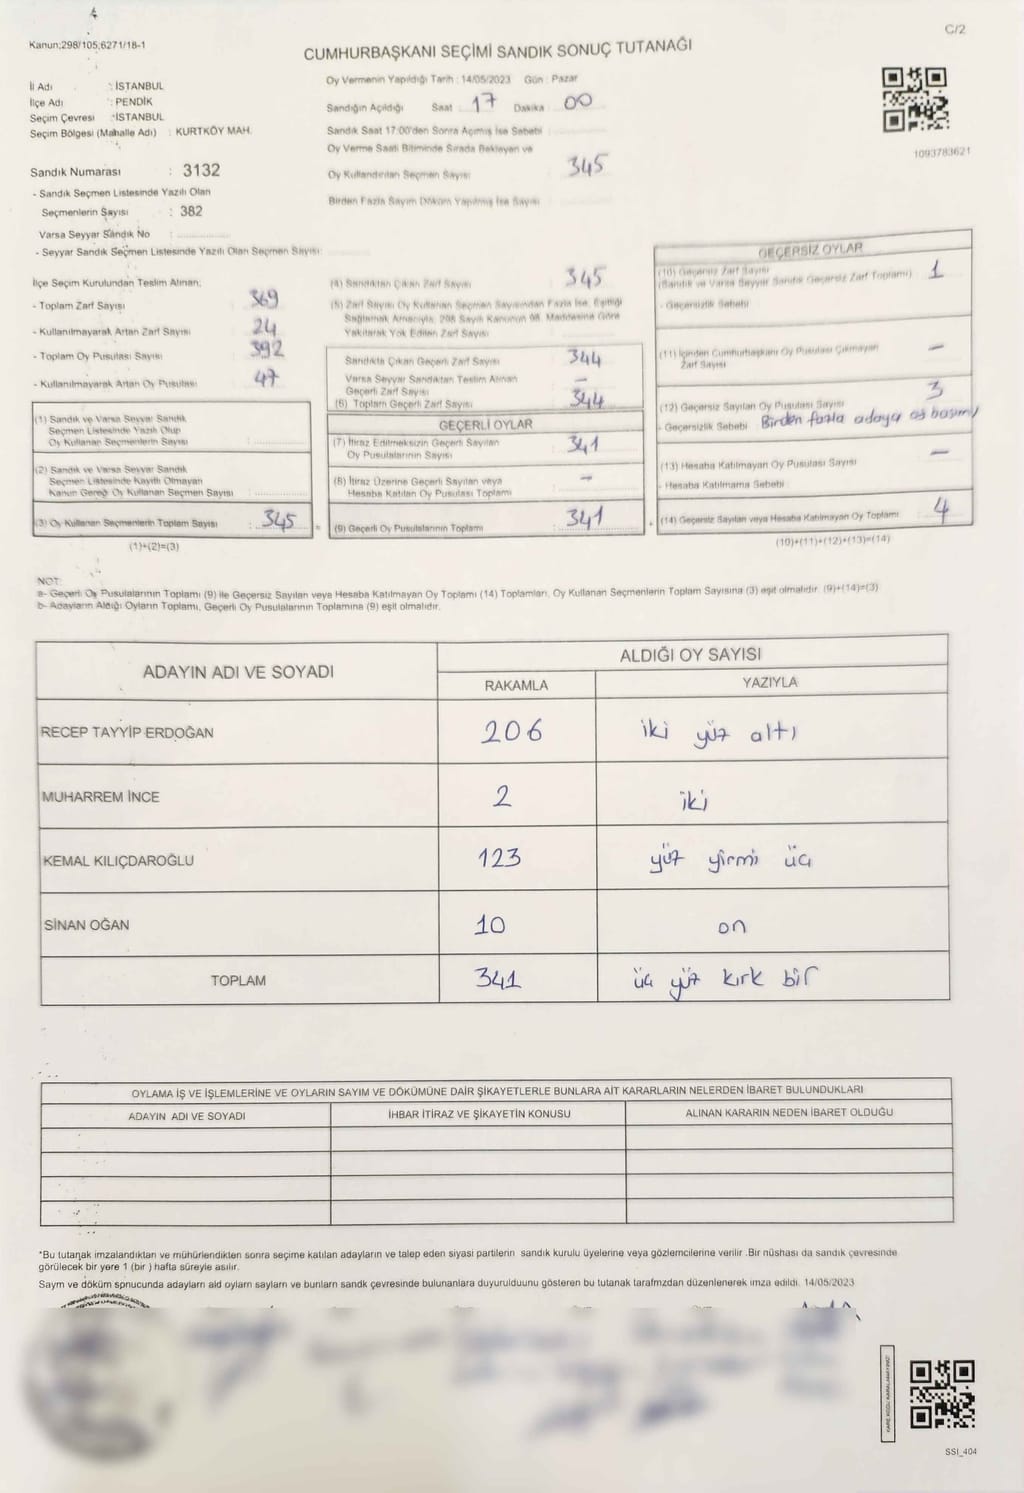 4
Kanun;298/105;6271/18-1
C/2
CUMHURBAŞKANI SEÇİMİ SANDIK SONUÇ TUTANAĞI
İl Adı : İSTANBUL
İlçe Adı : PENDİK
Seçim Çevresi : İSTANBUL
Seçim Bölgesi (Mahalle Adı) : KURTKÖY MAH.
Oy Vermenin Yapıldığı Tarih : 14/05/2023 Gün : Pazar
Sandığın Açıldığı Saat 17 Dakika 00
Sandık Saat 17:00'den Sonra Açılmış İse Sebebi
Oy Verme Saati Bitiminde Sırada Bekleyen ve
Oy Kullandırılan Seçmen Sayısı 345
Birden Fazla Sayım Döküm Yapılmış İse Sayısı
1093783621
Sandık Numarası : 3132
- Sandık Seçmen Listesinde Yazılı Olan
Seçmenlerin Sayısı : 382
Varsa Seyyar Sandık No :
- Seyyar Sandık Seçmen Listesinde Yazılı Olan Seçmen Sayısı:
İlçe Seçim Kurulundan Teslim Alınan;
- Toplam Zarf Sayısı 369
- Kullanılmayarak Artan Zarf Sayısı 24
- Toplam Oy Pusulası Sayısı 392
- Kullanılmayarak Artan Oy Pusulası 47
(1) Sandık ve Varsa Seyyar Sandık
Seçmen Listesinde Yazılı Olup
Oy Kullanan Seçmenlerin Sayısı :
(2) Sandık ve Varsa Seyyar Sandık
Seçmen Listesinde Kayıtlı Olmayan
Kanun Gereği Oy Kullanan Seçmen Sayısı
(3) Oy Kullanan Seçmenlerin Toplam Sayısı : 345
(1)+(2)=(3)
(4) Sandıktan Çıkan Zarf Sayısı 345
(5) Zarf Sayısı Oy Kullanan Seçmen Sayısından Fazla İse, Eşitliği
Sağlamak Amacıyla, 298 Sayılı Kanunun 98. Maddesine Göre
Yakılarak Yok Edilen Zarf Sayısı
Sandıkta Çıkan Geçerli Zarf Sayısı 344
Varsa Seyyar Sandıktan Teslim Alınan
Geçerli Zarf Sayısı –
(6) Toplam Geçerli Zarf Sayısı 344
GEÇERLİ OYLAR
(7) İtiraz Edilmeksizin Geçerli Sayılan
Oy Pusulalarının Sayısı : 341
(8) İtiraz Üzerine Geçerli Sayılan veya
Hesaba Katılan Oy Pusulası Toplamı –
(9) Geçerli Oy Pusulalarının Toplamı : 341
GEÇERSİZ OYLAR
(10) Geçersiz Zarf Sayısı
(Sandık ve Varsa Seyyar Sandık Geçersiz Zarf Toplamı) 1
- Geçersizlik Sebebi
(11) İçinden Cumhurbaşkanı Oy Pusulası Çıkmayan
Zarf Sayısı –
(12) Geçersiz Sayılan Oy Pusulası Sayısı 3
- Geçersizlik Sebebi Birden fazla adaya oy basımı
(13) Hesaba Katılmayan Oy Pusulası Sayısı –
- Hesaba Katılmama Sebebi
(14) Geçersiz Sayılan veya Hesaba Katılmayan Oy Toplamı 4
(10)+(11)+(12)+(13)=(14)
NOT:
a- Geçerli Oy Pusulalarının Toplamı (9) ile Geçersiz Sayılan veya Hesaba Katılmayan Oy Toplamı (14) Toplamları, Oy Kullanan Seçmenlerin Toplam Sayısına (3) eşit olmalıdır. (9)+(14)=(3)
b- Adayların Aldığı Oyların Toplamı, Geçerli Oy Pusulalarının Toplamına (9) eşit olmalıdır.
ADAYIN ADI VE SOYADI
ALDIĞI OY SAYISI
RAKAMLA YAZIYLA
RECEP TAYYİP ERDOĞAN 206 iki yüz altı
MUHARREM İNCE 2 iki
KEMAL KILIÇDAROĞLU 123 yüz yirmi üç
SİNAN OĞAN 10 on
TOPLAM 341 üç yüz kırk bir
OYLAMA İŞ VE İŞLEMLERİNE VE OYLARIN SAYIM VE DÖKÜMÜNE DAİR ŞİKAYETLERLE BUNLARA AİT KARARLARIN NELERDEN İBARET BULUNDUKLARI
ADAYIN ADI VE SOYADI İHBAR İTİRAZ VE ŞİKAYETİN KONUSU ALINAN KARARIN NEDEN İBARET OLDUĞU
*Bu tutanak imzalandıktan ve mühürlendikten sonra seçime katılan adayların ve talep eden siyasi partilerin sandık kurulu üyelerine veya gözlemcilerine verilir .Bir nüshası da sandık çevresinde
görülecek bir yere 1 (bir ) hafta süreyle asılır.
Saym ve döküm spnucunda adaylarn ald oylarn saylarn ve bunlarn sandk çevresinde bulunanlara duyurulduunu gösteren bu tutanak tarafmzdan düzenlenerek imza edildi. 14/05/2023
KARE KODU KARALAMAYINIZ!
SSI_404